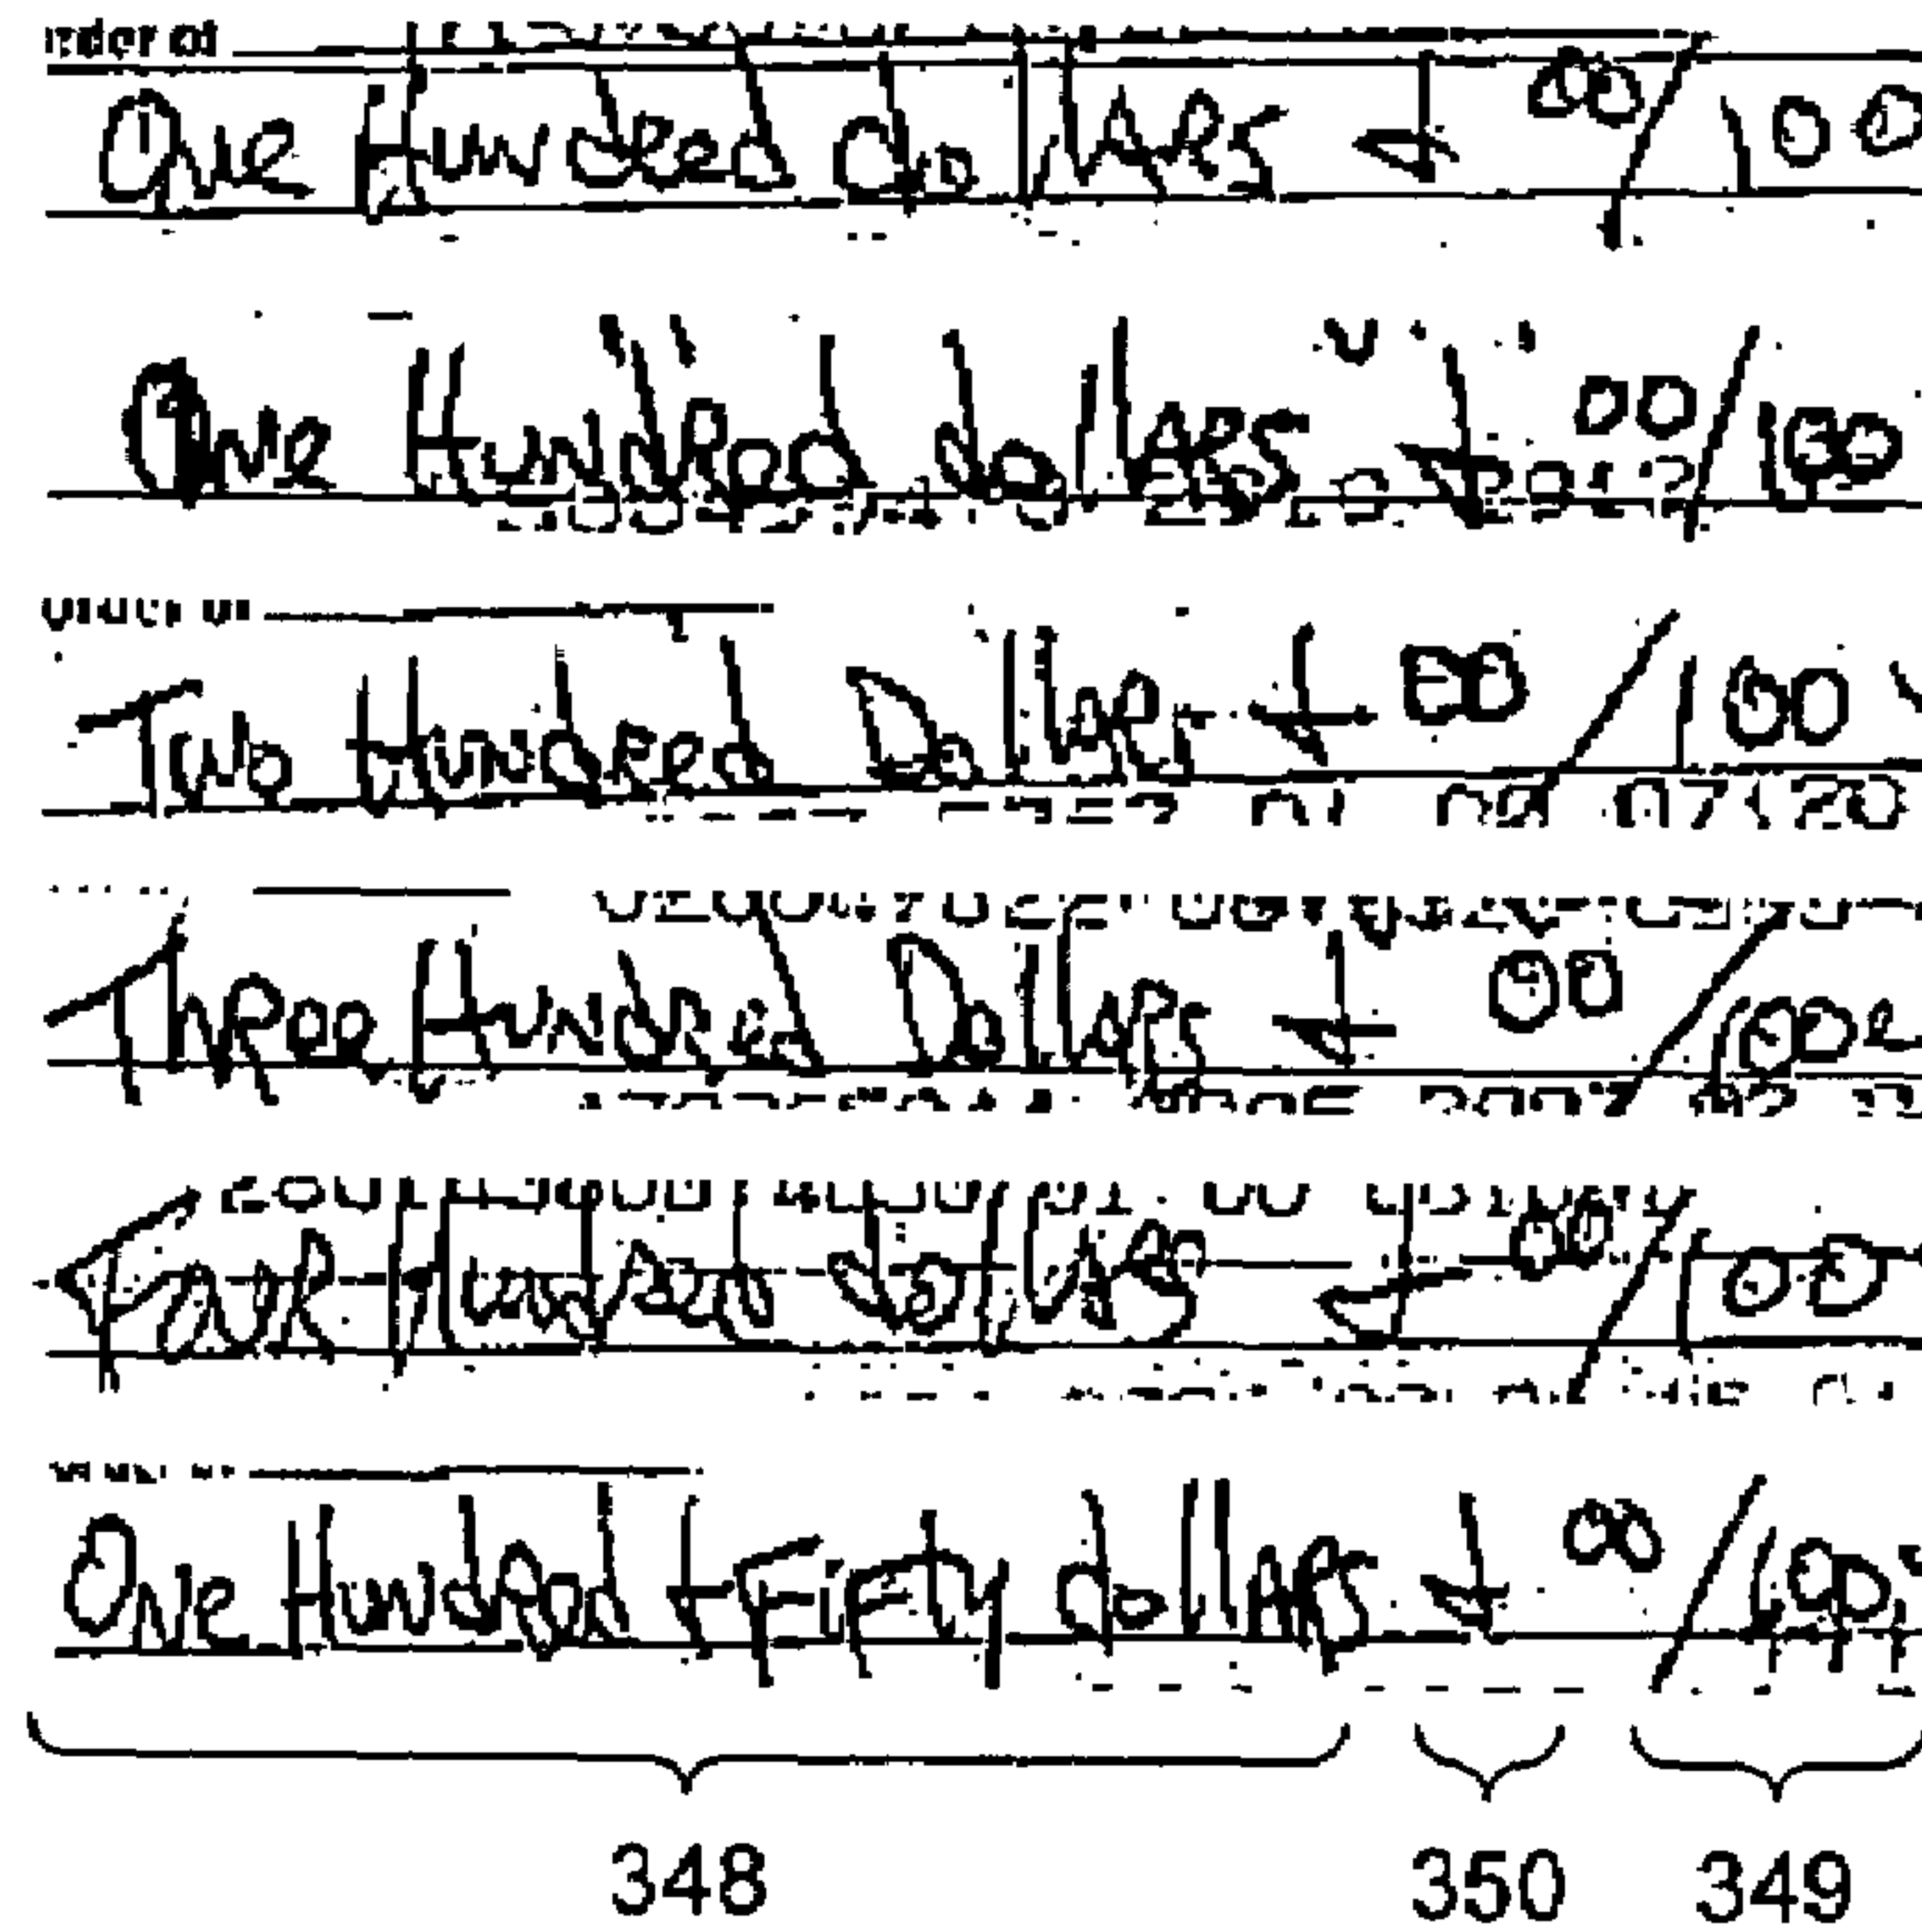 One Hundred dollars + 00/100
One Hundred dollars + 00/100
Two Hundred Dollars + 00/100
Three Hundred Dollars + 00/100
Hundred dollars + 00/100
One Hundred + Fifty dollars + 00/100
348 350 349